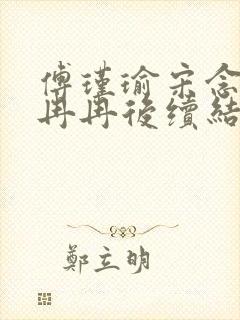 傅瑾瑜宋念
冉冉後續結
鄭立明